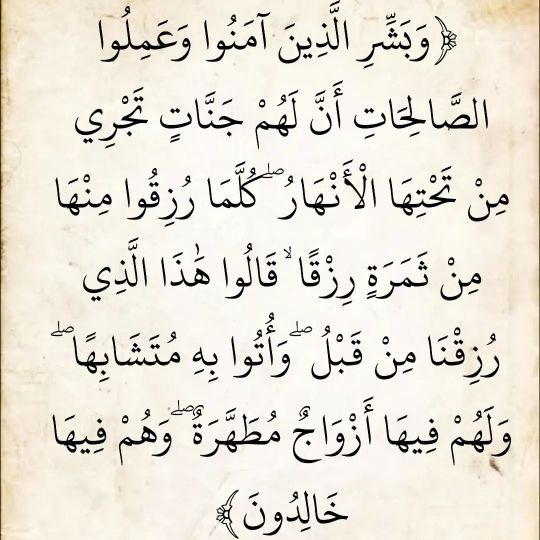 ﴿وَبَشِّرِ الَّذِينَ آمَنُوا وَعَمِلُوا
الصَّالِحَاتِ أَنَّ لَهُمْ جَنَّاتٍ تَجْرِي
مِنْ تَحْتِهَا الْأَنْهَارُ ۖ كُلَّمَا رُزِقُوا مِنْهَا
مِنْ ثَمَرَةٍ رِزْقًا ۙ قَالُوا هَٰذَا الَّذِي
رُزِقْنَا مِنْ قَبْلُ ۖ وَأُتُوا بِهِ مُتَشَابِهًا ۖ
وَلَهُمْ فِيهَا أَزْوَاجٌ مُطَهَّرَةٌ ۖ وَهُمْ فِيهَا
خَالِدُونَ﴾